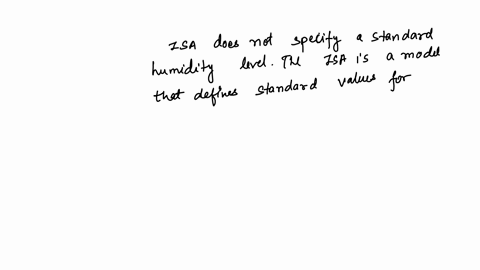 ISA does not specify a standard
humidity level. The ISA is a model
that defines standard values for